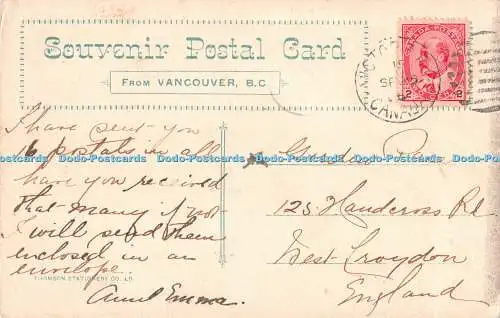 Souvenir Postal Card
FROM VANCOUVER, B.C
CANADA
2 2
I have sent you
16 postals in all
have you received
that many if not
I will send them
enclosed in an
envelope.
THOMSON STATIONERY CO. LD.
Aunt Emma.
125 Handcross Rd
West Croydon
England
Dodo-Postcards Dodo-Postcards Dodo-Postcards Dodo-Postcards Dodo-Postcards Dodo-Postcards